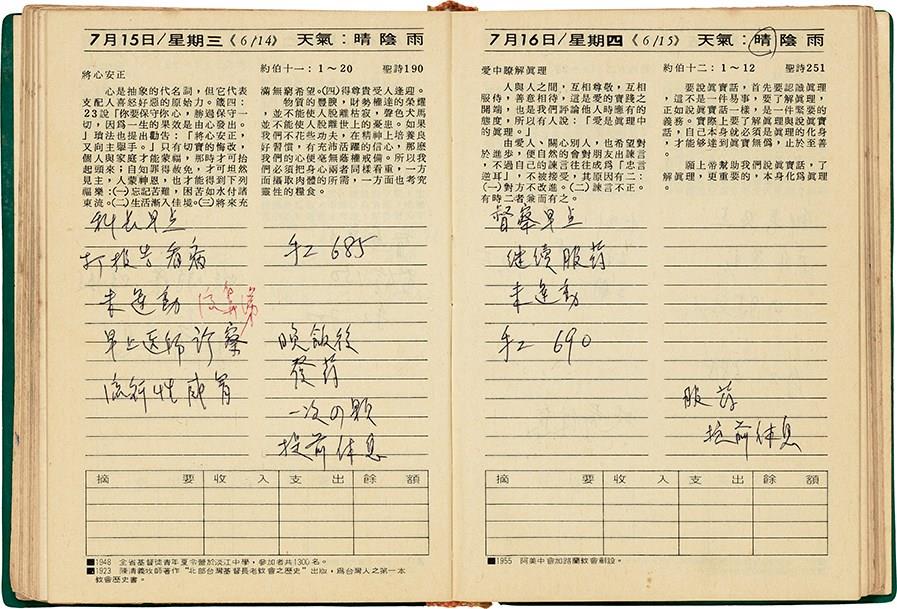 7月15日/星期三《6/14》 天氣:晴 陰 雨
約伯十一:1～20 聖詩190
將心安正
心是抽象的代名詞,但它代表
支配人喜怒好惡的原始力。箴四:
23說「你要保守你心,勝過保守一
切,因為一生的果效是由心發出。
」瑣法也提出勸告:「將心安正,
又向主舉手。」只有切實的悔改,
個人與家庭才能蒙福,那時才可抬
起頭來;自如罪得赦免,才可坦然
見主,人蒙神恩,也才能得到下列
福樂:㈠忘記苦難,困苦如水付諸
東流。㈡生活漸入佳境。㈢將來充
滿無窮希望。㈣得尊貴受人逢迎。
物質的豐腴,財勢權達的榮耀
,並不能使人脫離枯寂,聲色犬馬
,並不能使人脫離世上的憂患。如果
我們不花些功夫,在精神上培養良
好習慣,有充沛活躍的信心,那麼
我們的心便毫無蔭權威備。所以我
們必須把身心兩者同樣看重,一方
面攝取肉體的所需,一方面也考究
靈性的糧食。
科长早点
打报告看病
未運動
早上医师诊察
流行性感冒
手工 685
晚飯後
發药
一次四顆
提前休息
摘 要 收 入 支 出 餘 額
■1948 全省基督徒青年夏令營於淡江中學,參加者共1300名。
■1923 陳清義牧師著作“北部台灣基督長老教會之歷史”出版,為台灣人之第一本
教會歷史書。
7月16日/星期四《6/15》 天氣:晴 陰 雨
約伯十二:1～12 聖詩251
愛中瞭解眞理
人與人之間,互相尊敬,互相
服侍,善意相待,這是愛的實踐之
開端,也是我們評論他人時應有的
態度,所以有人說:「愛是眞理中
的眞理。」
由愛人、關心別人,也希望對
於進步,便自然的會對朋友出諫言
,不過自己的諫言往往成爲「忠言
逆耳」,不被接受,其原因有二:
㈠對方不改進。㈡諫言不正。
有時二者兼而有之。
要說眞實話,首先要認識眞理
,這不是一件易事,要了解眞理,
正如說眞實話一樣,是一件緊要的
義務。實際上要了解眞理與說眞實
話,自己本身就必須是眞理的化身
,才能夠達到眞實無僞,止於至善
。
願上帝幫助我們說眞實話,了
解眞理,更重要的,本身化爲眞理
。
督察早点
继续服药
未運動
手工 690
服药
提前休息
摘 要 收 入 支 出 餘 額
■1955 阿美中會加路蘭教會創設。